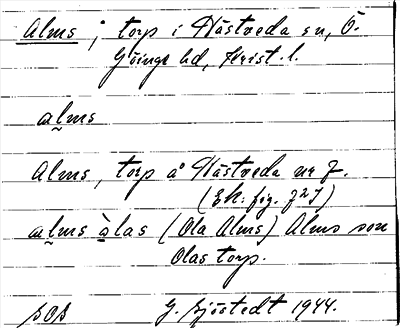 Alms, torp i Hästveda sn, Ö.
Göinge hd, Krist. l.
alms
Alms, torp å Hästveda nr 7.
(Ek. frg. 727)
alms àlas (Ola Alms) Alms son
Olas torp.
sos G. Sjöstedt 1944.